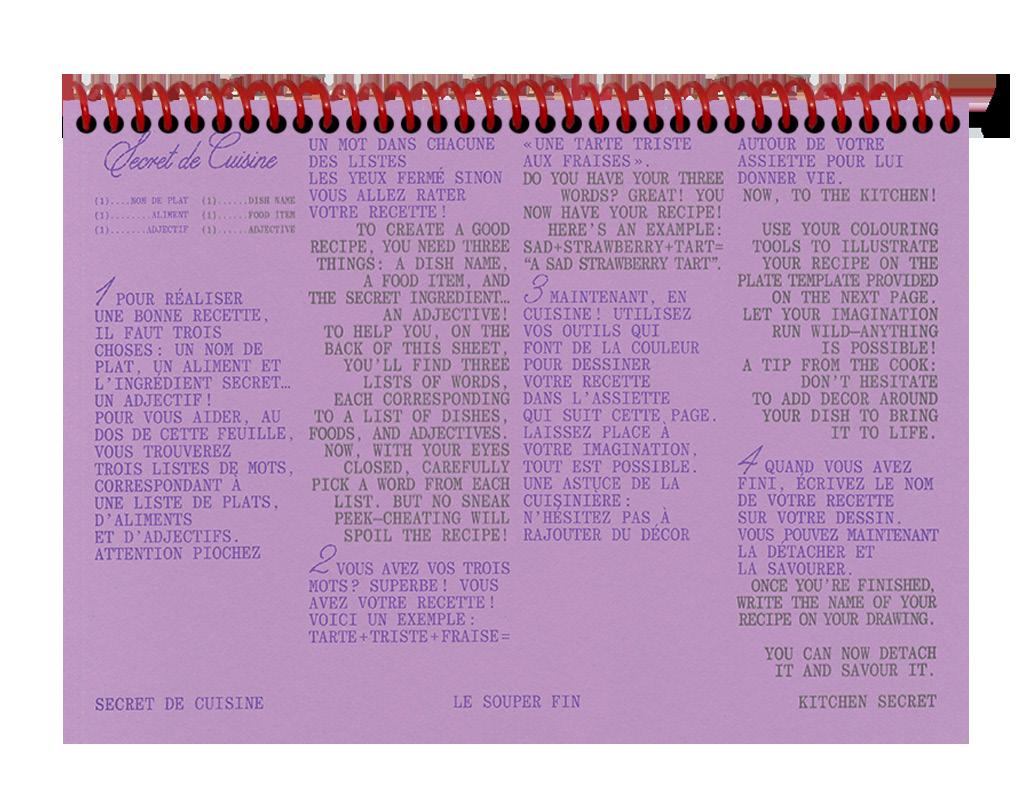 Secret de Cuisine
(1)....NOM DE PLAT
(1)........ALIMENT
(1).......ADJECTIF
(1)......DISH NAME
(1)......FOOD ITEM
(1)......ADJECTIVE
1 POUR RÉALISER
UNE BONNE RECETTE,
IL FAUT TROIS
CHOSES: UN NOM DE
PLAT, UN ALIMENT ET
L'INGRÉDIENT SECRET…
UN ADJECTIF!
POUR VOUS AIDER, AU
DOS DE CETTE FEUILLE,
VOUS TROUVEREZ
TROIS LISTES DE MOTS,
CORRESPONDANT À
UNE LISTE DE PLATS,
D'ALIMENTS
ET D'ADJECTIFS.
ATTENTION PIOCHEZ
UN MOT DANS CHACUNE
DES LISTES
LES YEUX FERMÉ SINON
VOUS ALLEZ RATER
VOTRE RECETTE!
TO CREATE A GOOD
RECIPE, YOU NEED THREE
THINGS: A DISH NAME,
A FOOD ITEM, AND
THE SECRET INGREDIENT…
AN ADJECTIVE!
TO HELP YOU, ON THE
BACK OF THIS SHEET,
YOU'LL FIND THREE
LISTS OF WORDS,
EACH CORRESPONDING
TO A LIST OF DISHES,
FOODS, AND ADJECTIVES.
NOW, WITH YOUR EYES
CLOSED, CAREFULLY
PICK A WORD FROM EACH
LIST. BUT NO SNEAK
PEEK—CHEATING WILL
SPOIL THE RECIPE!
2 VOUS AVEZ VOS TROIS
MOTS? SUPERBE! VOUS
AVEZ VOTRE RECETTE!
VOICI UN EXEMPLE:
TARTE+TRISTE+FRAISE=
«UNE TARTE TRISTE
AUX FRAISES».
DO YOU HAVE YOUR THREE
WORDS? GREAT! YOU
NOW HAVE YOUR RECIPE!
HERE'S AN EXAMPLE:
SAD+STRAWBERRY+TART=
“A SAD STRAWBERRY TART”.
3 MAINTENANT, EN
CUISINE! UTILISEZ
VOS OUTILS QUI
FONT DE LA COULEUR
POUR DESSINER
VOTRE RECETTE
DANS L'ASSIETTE
QUI SUIT CETTE PAGE.
LAISSEZ PLACE À
VOTRE IMAGINATION,
TOUT EST POSSIBLE.
UNE ASTUCE DE LA
CUISINIÈRE:
N'HÉSITEZ PAS À
RAJOUTER DU DÉCOR
AUTOUR DE VOTRE
ASSIETTE POUR LUI
DONNER VIE.
NOW, TO THE KITCHEN!
USE YOUR COLOURING
TOOLS TO ILLUSTRATE
YOUR RECIPE ON THE
PLATE TEMPLATE PROVIDED
ON THE NEXT PAGE.
LET YOUR IMAGINATION
RUN WILD—ANYTHING
IS POSSIBLE!
A TIP FROM THE COOK:
DON'T HESITATE
TO ADD DECOR AROUND
YOUR DISH TO BRING
IT TO LIFE.
4 QUAND VOUS AVEZ
FINI, ÉCRIVEZ LE NOM
DE VOTRE RECETTE
SUR VOTRE DESSIN.
VOUS POUVEZ MAINTENANT
LA DÉTACHER ET
LA SAVOURER.
ONCE YOU'RE FINISHED,
WRITE THE NAME OF YOUR
RECIPE ON YOUR DRAWING.
YOU CAN NOW DETACH
IT AND SAVOUR IT.
SECRET DE CUISINE
LE SOUPER FIN
KITCHEN SECRET